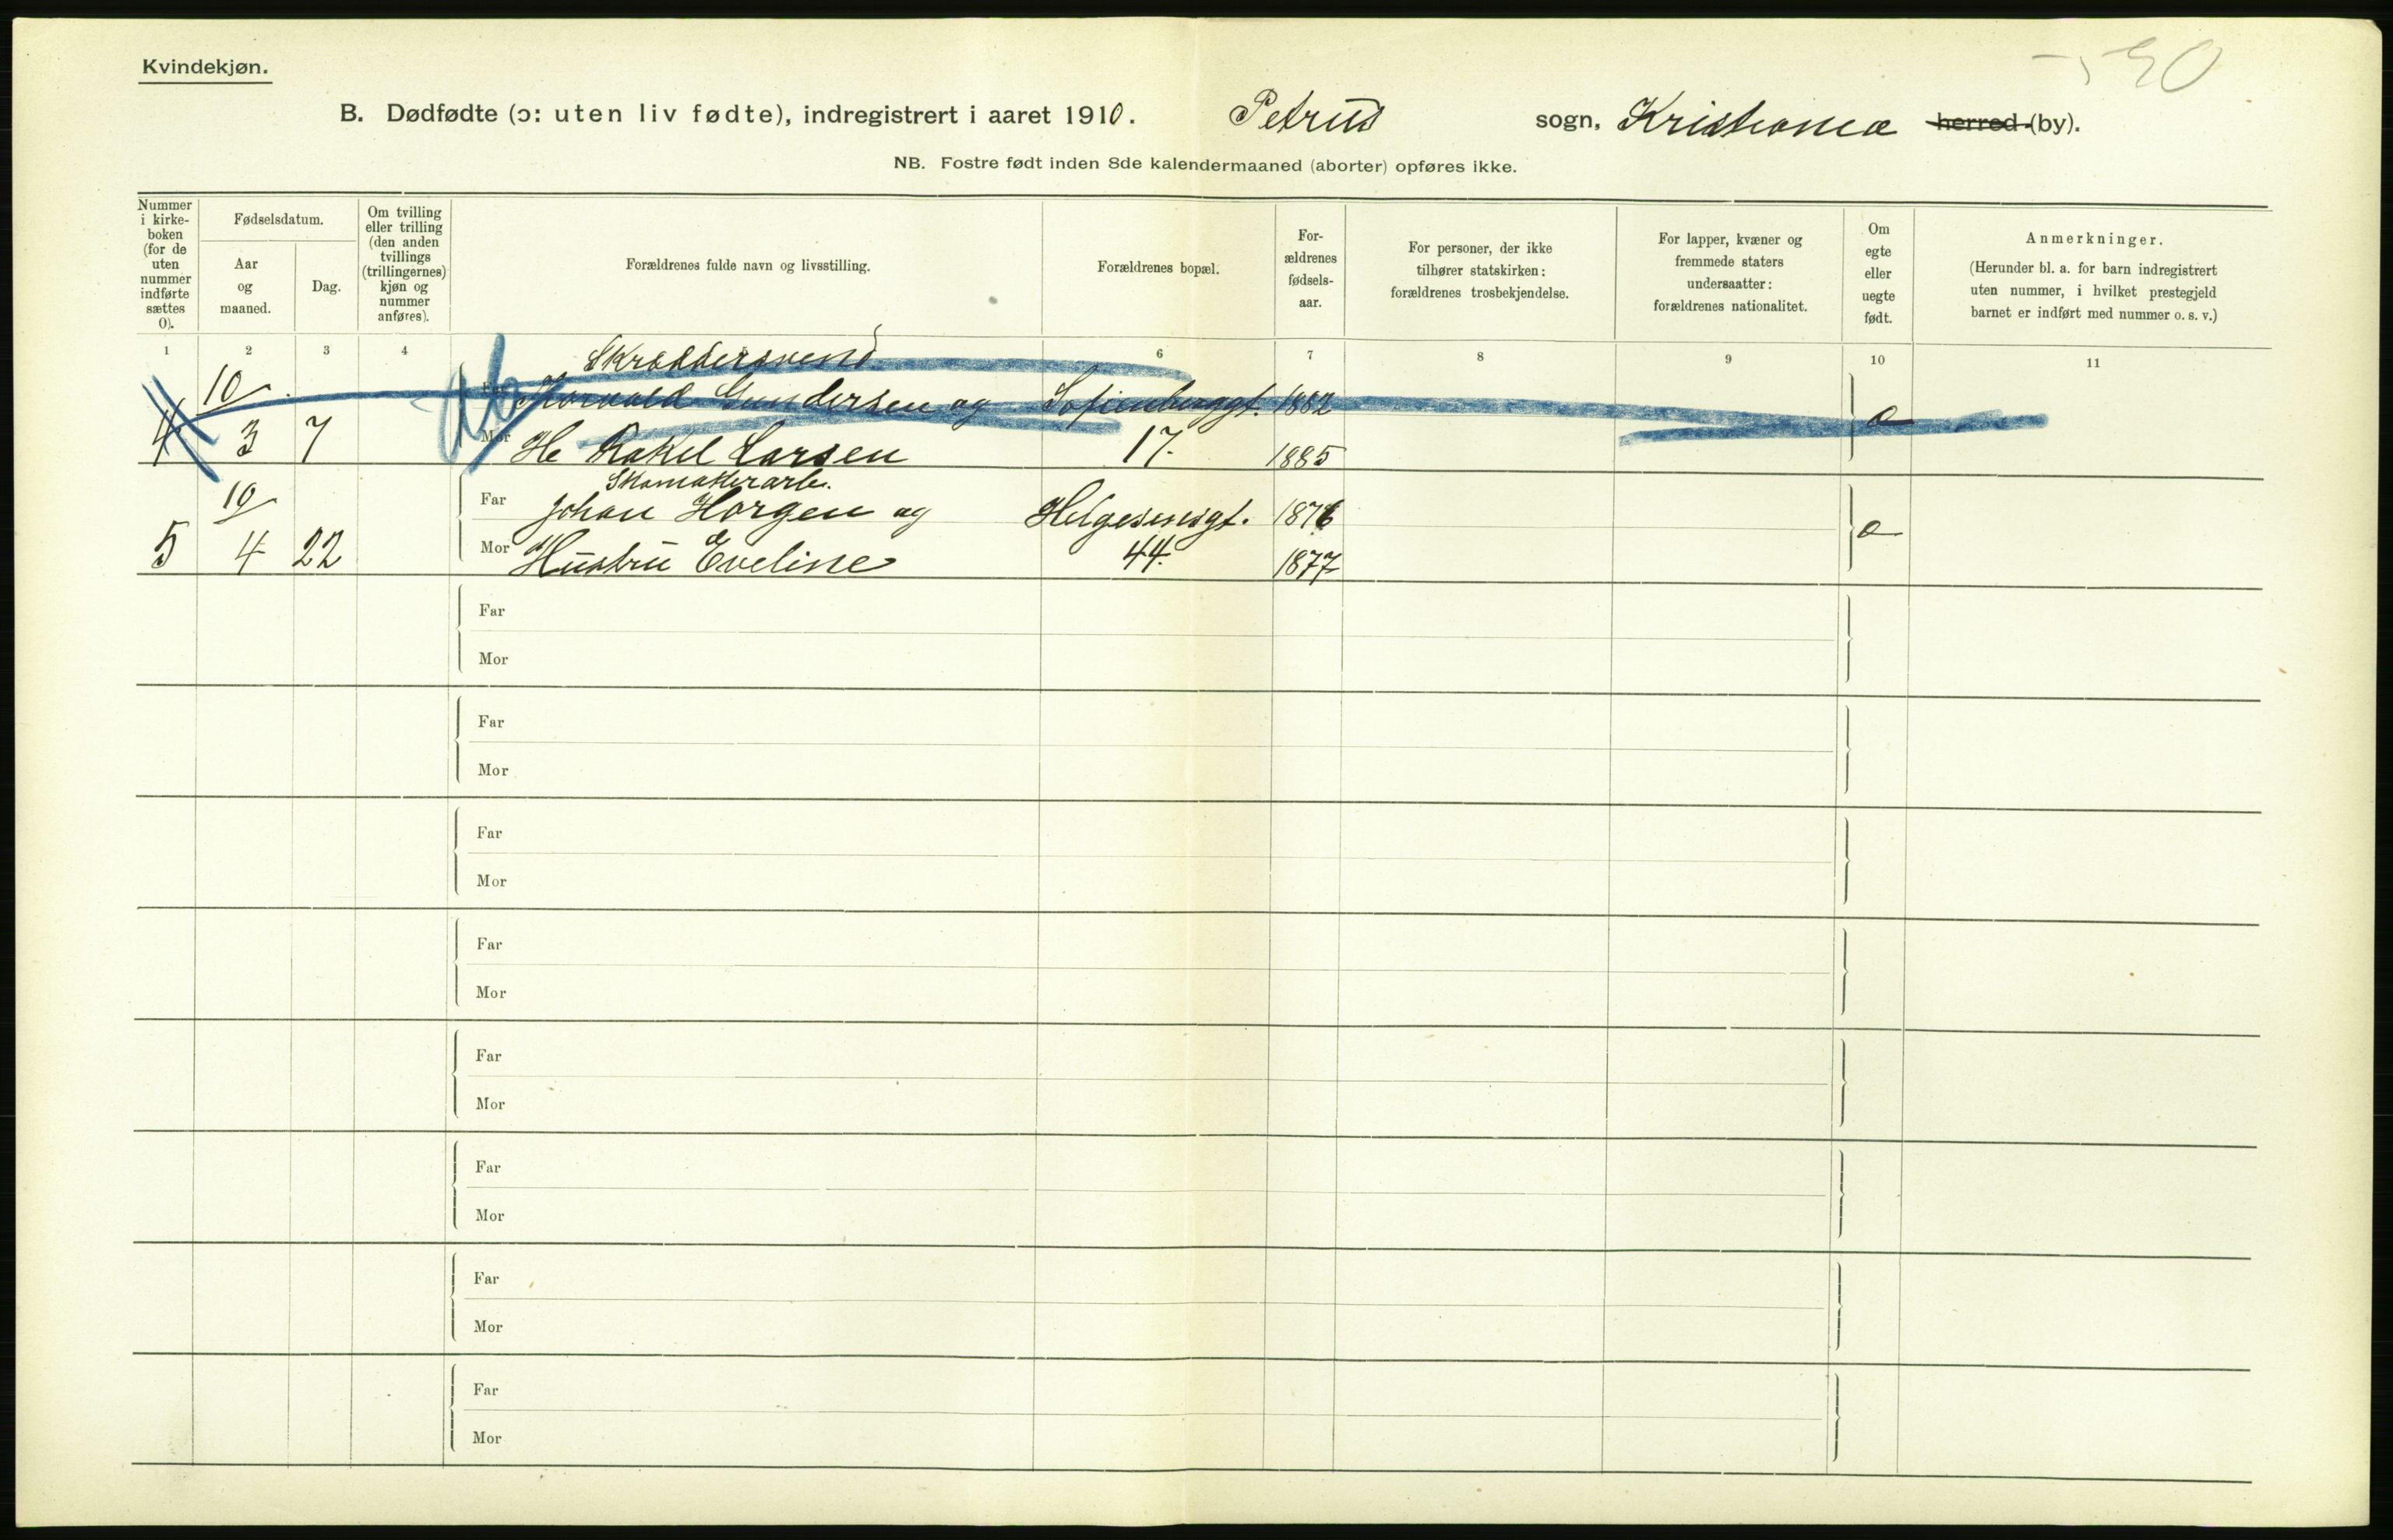 Kvindekjøn.
B. Dødfødte (ɔ: uten liv fødte), indregistrert i aaret 1910. Petrus sogn, Kristiania herred (by).
NB. Fostre født inden 8de kalendermaaned (aborter) opføres ikke.
Nummer
i kirke-
boken
(for de
uten
nummer
indførte
sættes
0).
Fødselsdatum.
Aar
og
maaned.
Dag.
Om tvilling
eller trilling
(den anden
tvillings
(trillingernes)
kjøn og
nummer
anføres).
Forældrenes fulde navn og livsstilling.
Forældrenes bopæl.
For-
ældrenes
fødsels-
aar.
For personer, der ikke
tilhører statskirken:
forældrenes trosbekjendelse.
For lapper, kvæner og
fremmede staters
undersaatter:
forældrenes nationalitet.
Om
egte
eller
uegte
født.
Anmerkninger.
(Herunder bl. a. for barn indregistrert
uten nummer, i hvilket prestegjeld
barnet er indført med nummer o. s. v.)
1 2 3 4 6 7 8 9 10 11
Skræddersvend
10 Far Thorvald Gundersen og Sofienberggt. 1882
4 3 7 Mor He Rakel Larsen 17. 1885
Skomakerarb.
10 Far Johan Horgen og Helgesensgt. 1876
5 4 22 Mor Hustru Eveline 44. 1877
Far
Mor
Far
Mor
Far
Mor
Far
Mor
Far
Mor
Far
Mor
Far
Mor
Far
Mor